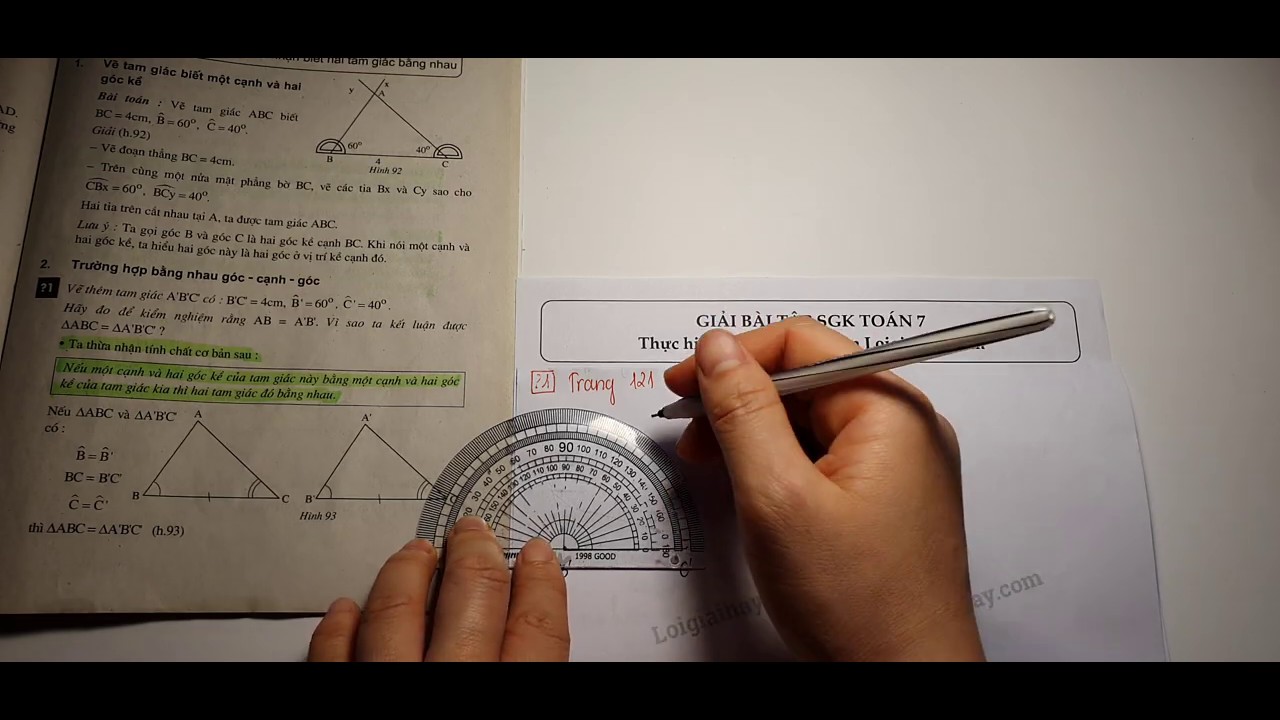 AD.
ận biết hai tam giác bằng nhau
1. Vẽ tam giác biết một cạnh và hai
góc kề
Bài toán : Vẽ tam giác ABC biết
BC = 4cm, B̂ = 60°, Ĉ = 40°.
Giải (h.92)
– Vẽ đoạn thẳng BC = 4cm.
– Trên cùng một nửa mặt phẳng bờ BC, vẽ các tia Bx và Cy sao cho
CBx = 60°, BCy = 40°.
Hai tia trên cắt nhau tại A, ta được tam giác ABC.
Lưu ý : Ta gọi góc B và góc C là hai góc kề cạnh BC. Khi nói một cạnh và
hai góc kề, ta hiểu hai góc này là hai góc ở vị trí kề cạnh đó.
y x
A
60° 40°
B 4 C
Hình 92
2. Trường hợp bằng nhau góc - cạnh - góc
?1 Vẽ thêm tam giác A'B'C' có : B'C' = 4cm, B̂' = 60°, Ĉ' = 40°.
Hãy đo để kiểm nghiệm rằng AB = A'B'. Vì sao ta kết luận được
ΔABC = ΔA'B'C' ?
• Ta thừa nhận tính chất cơ bản sau :
Nếu một cạnh và hai góc kề của tam giác này bằng một cạnh và hai góc
kề của tam giác kia thì hai tam giác đó bằng nhau.
Nếu ΔABC và ΔA'B'C'
có :
B̂ = B̂'
BC = B'C'
Ĉ = Ĉ'
thì ΔABC = ΔA'B'C' (h.93)
A A'
B C B'
Hình 93
GIẢI BÀI TẬP SGK TOÁN 7
Thực hi
?1 Trang 121
1998 GOOD
C'
Loigiaihay
ay.com